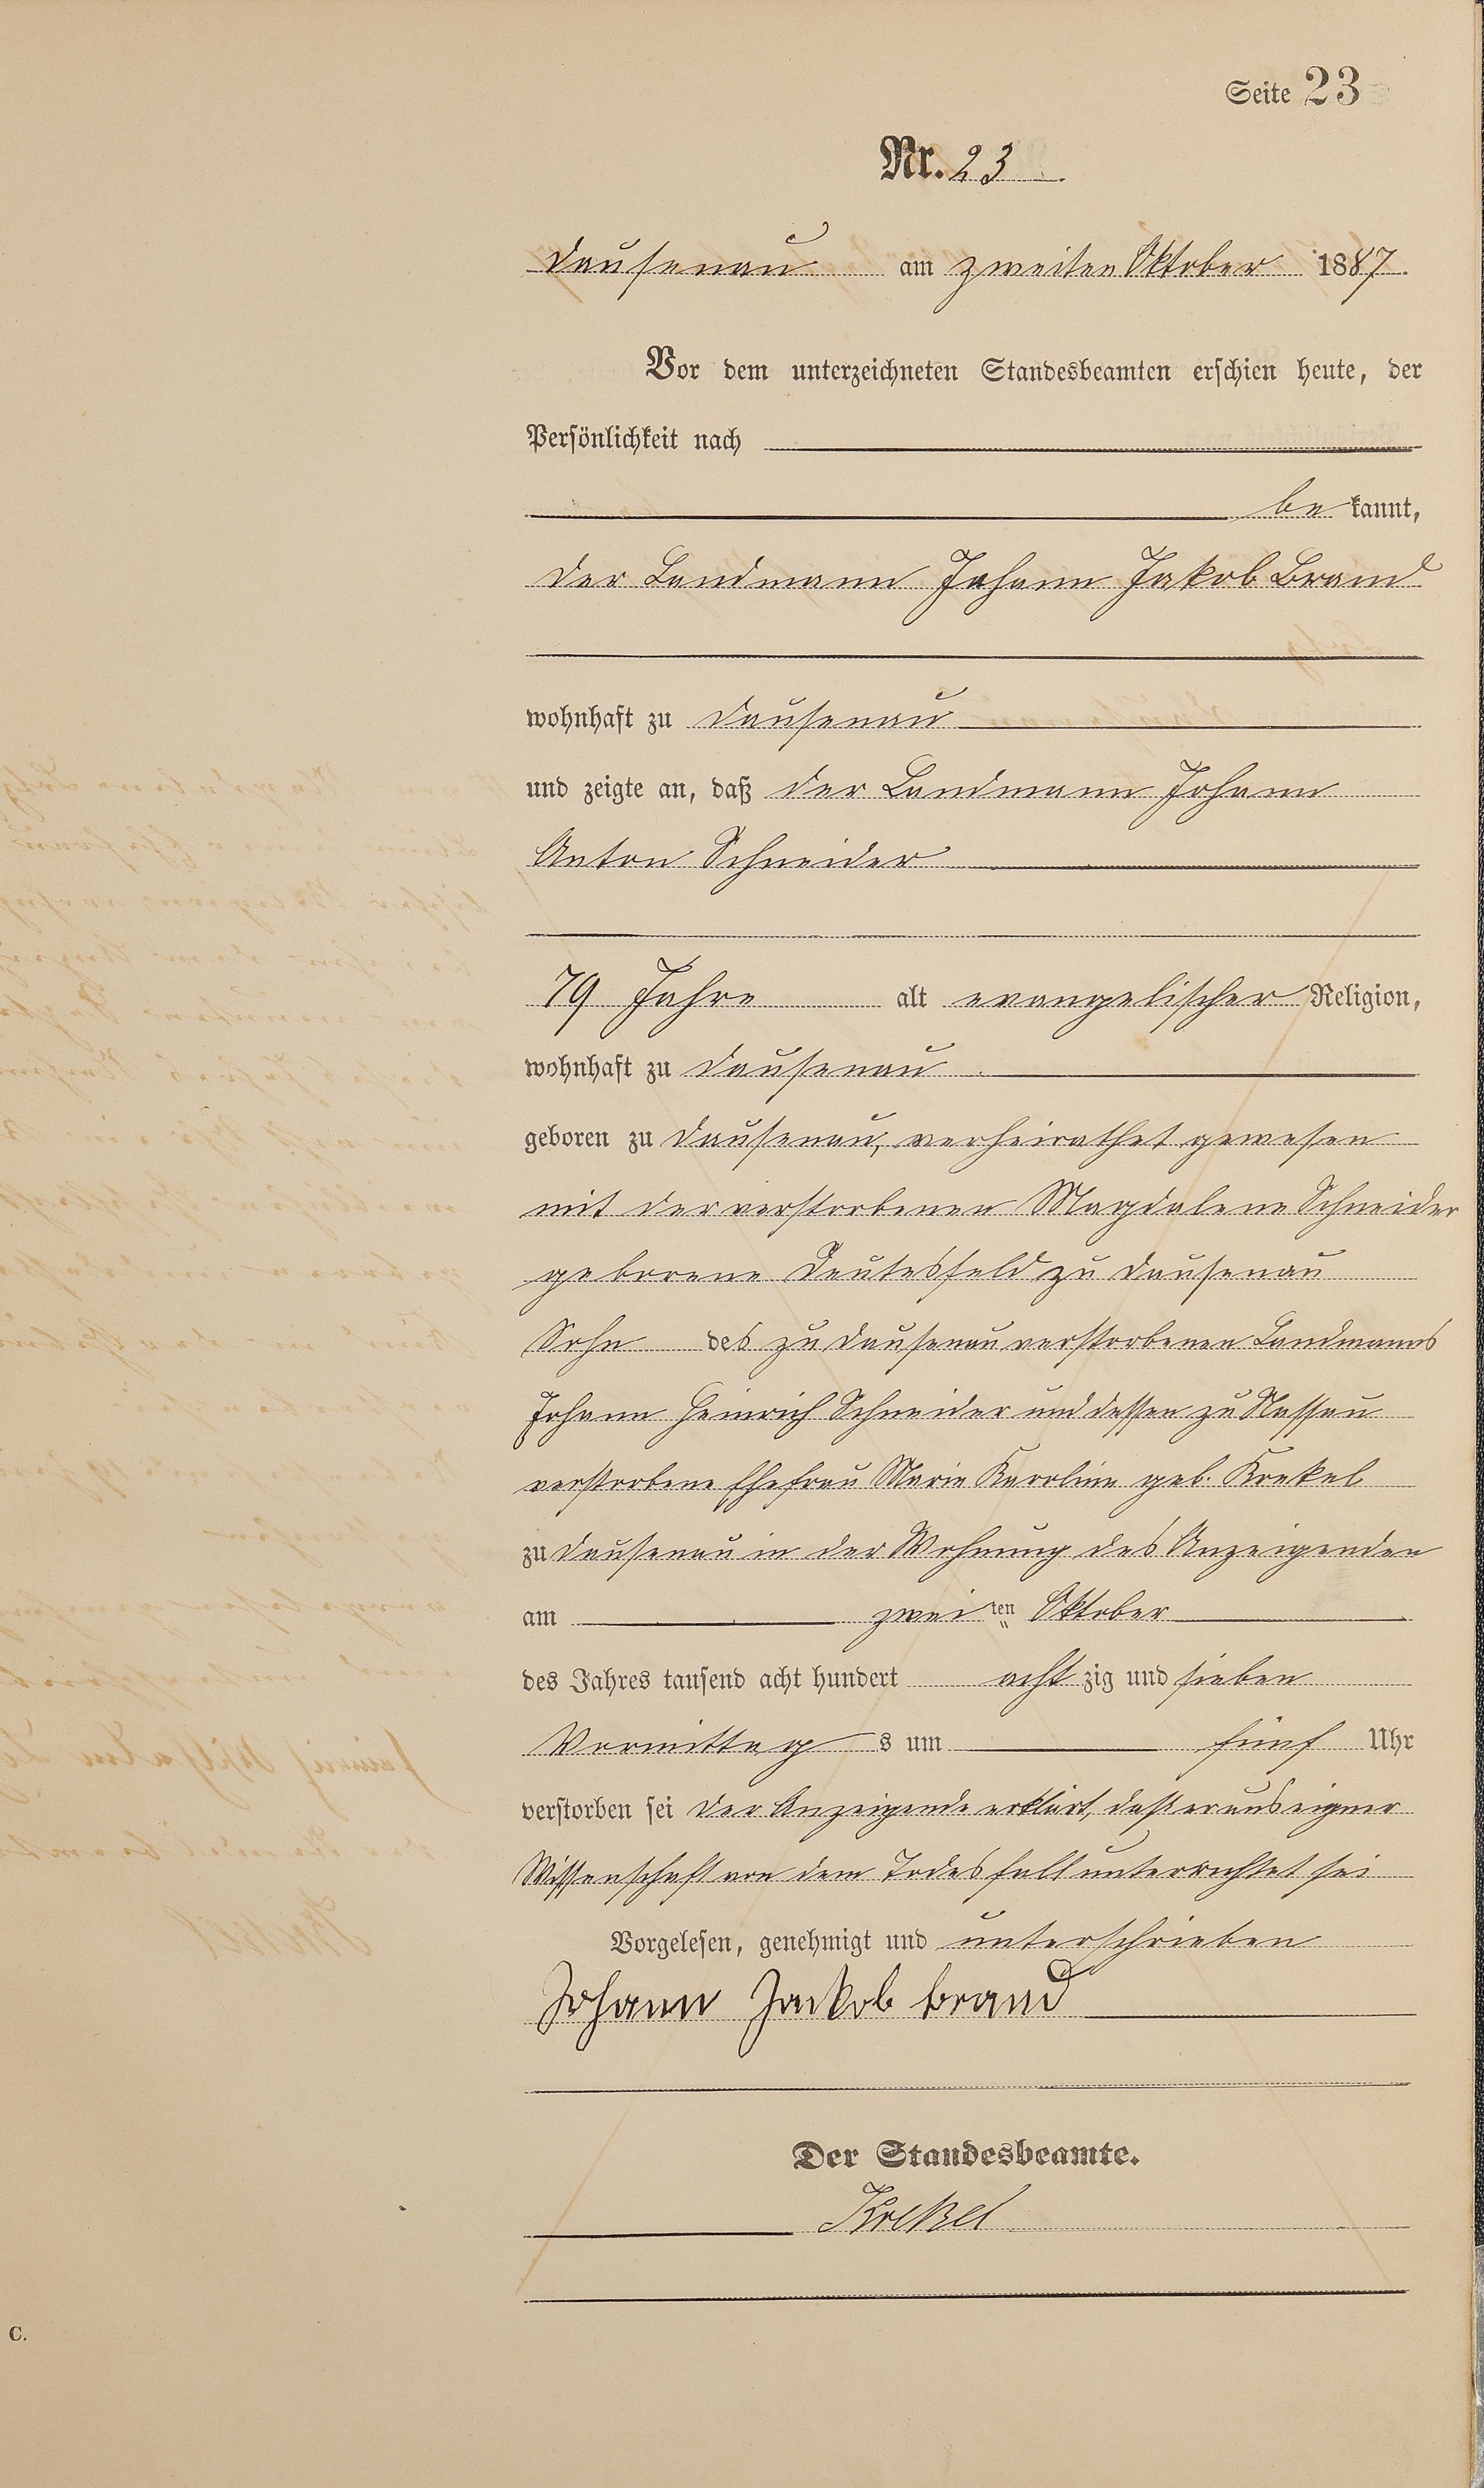 Seite 23
Nr. 23
Dausenau am zweiten Oktober 1887.
Vor dem unterzeichneten Standesbeamten erschien heute, der
Persönlichkeit nach
be kannt,
der Landmann Johann Jakob Brand
wohnhaft zu Dausenau
und zeigte an, daß der Landmann Johann
Anton Schneider
79 Jahre alt evangelischer Religion,
wohnhaft zu Dausenau
geboren zu Dausenau, verheirathet gewesen
mit der verstorbenen Magdalene Schneider
geborene Deutesfeld zu Dausenau
Sohn des zu Dausenau verstorbenen Landmanns
Johann Heinrich Schneider und dessen zu Nassau
verstorbene Ehefrau Marie Karoline geb. Krekel
zu Dausenau in der Wohnung des Anzeigenden
am zwei ten Oktober
des Jahres tausend acht hundert acht zig und sieben
Vormittag s um fünf Uhr
verstorben sei der Anzeigende erklärt, daß er aus eigner
Wissenschaft von dem Todesfall unterrichtet sei
Vorgelesen, genehmigt und unterschrieben
Johann Jackob Brand
Der Standesbeamte.
Krekel
C.